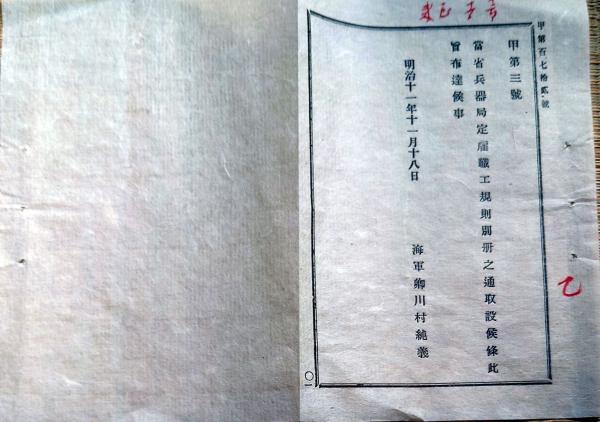 甲第百七拾貳號
甲第三號
當省兵器局定雇職工規則別册之通取設候條此
旨布達候事
明治十一年十一月十八日
海軍卿川村純義
〇一
乙